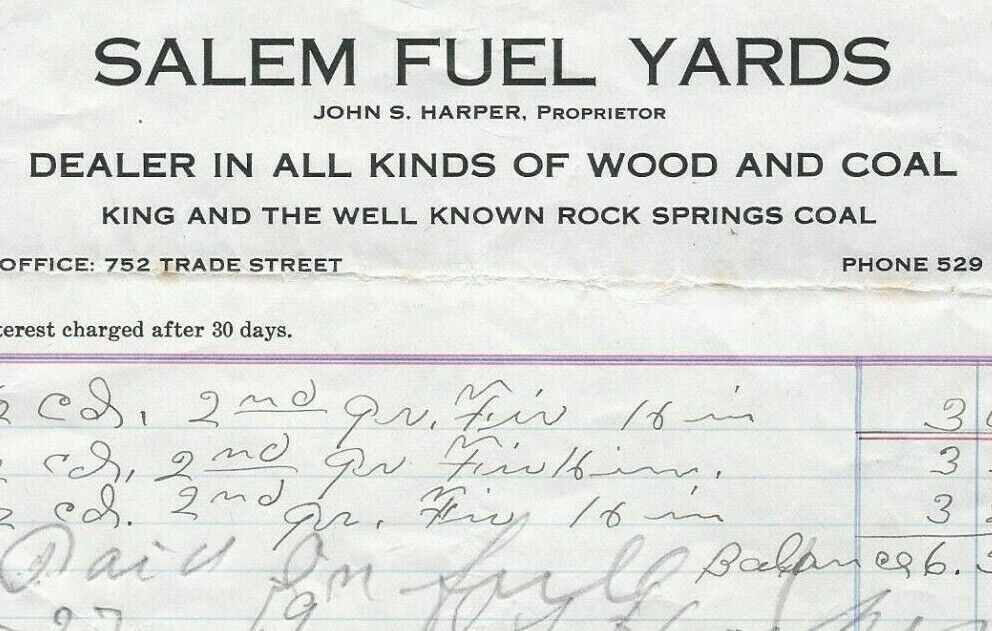 SALEM FUEL YARDS
JOHN S. HARPER, PROPRIETOR
DEALER IN ALL KINDS OF WOOD AND COAL
KING AND THE WELL KNOWN ROCK SPRINGS COAL
OFFICE: 752 TRADE STREET PHONE 529
terest charged after 30 days.
cds. 2nd gr. Fir 16 in 3
cds. 2nd gr Fir 16 in. 3
cds. 2nd gr. Fir 16 in 3
Paid In full Balance 6.
27 19